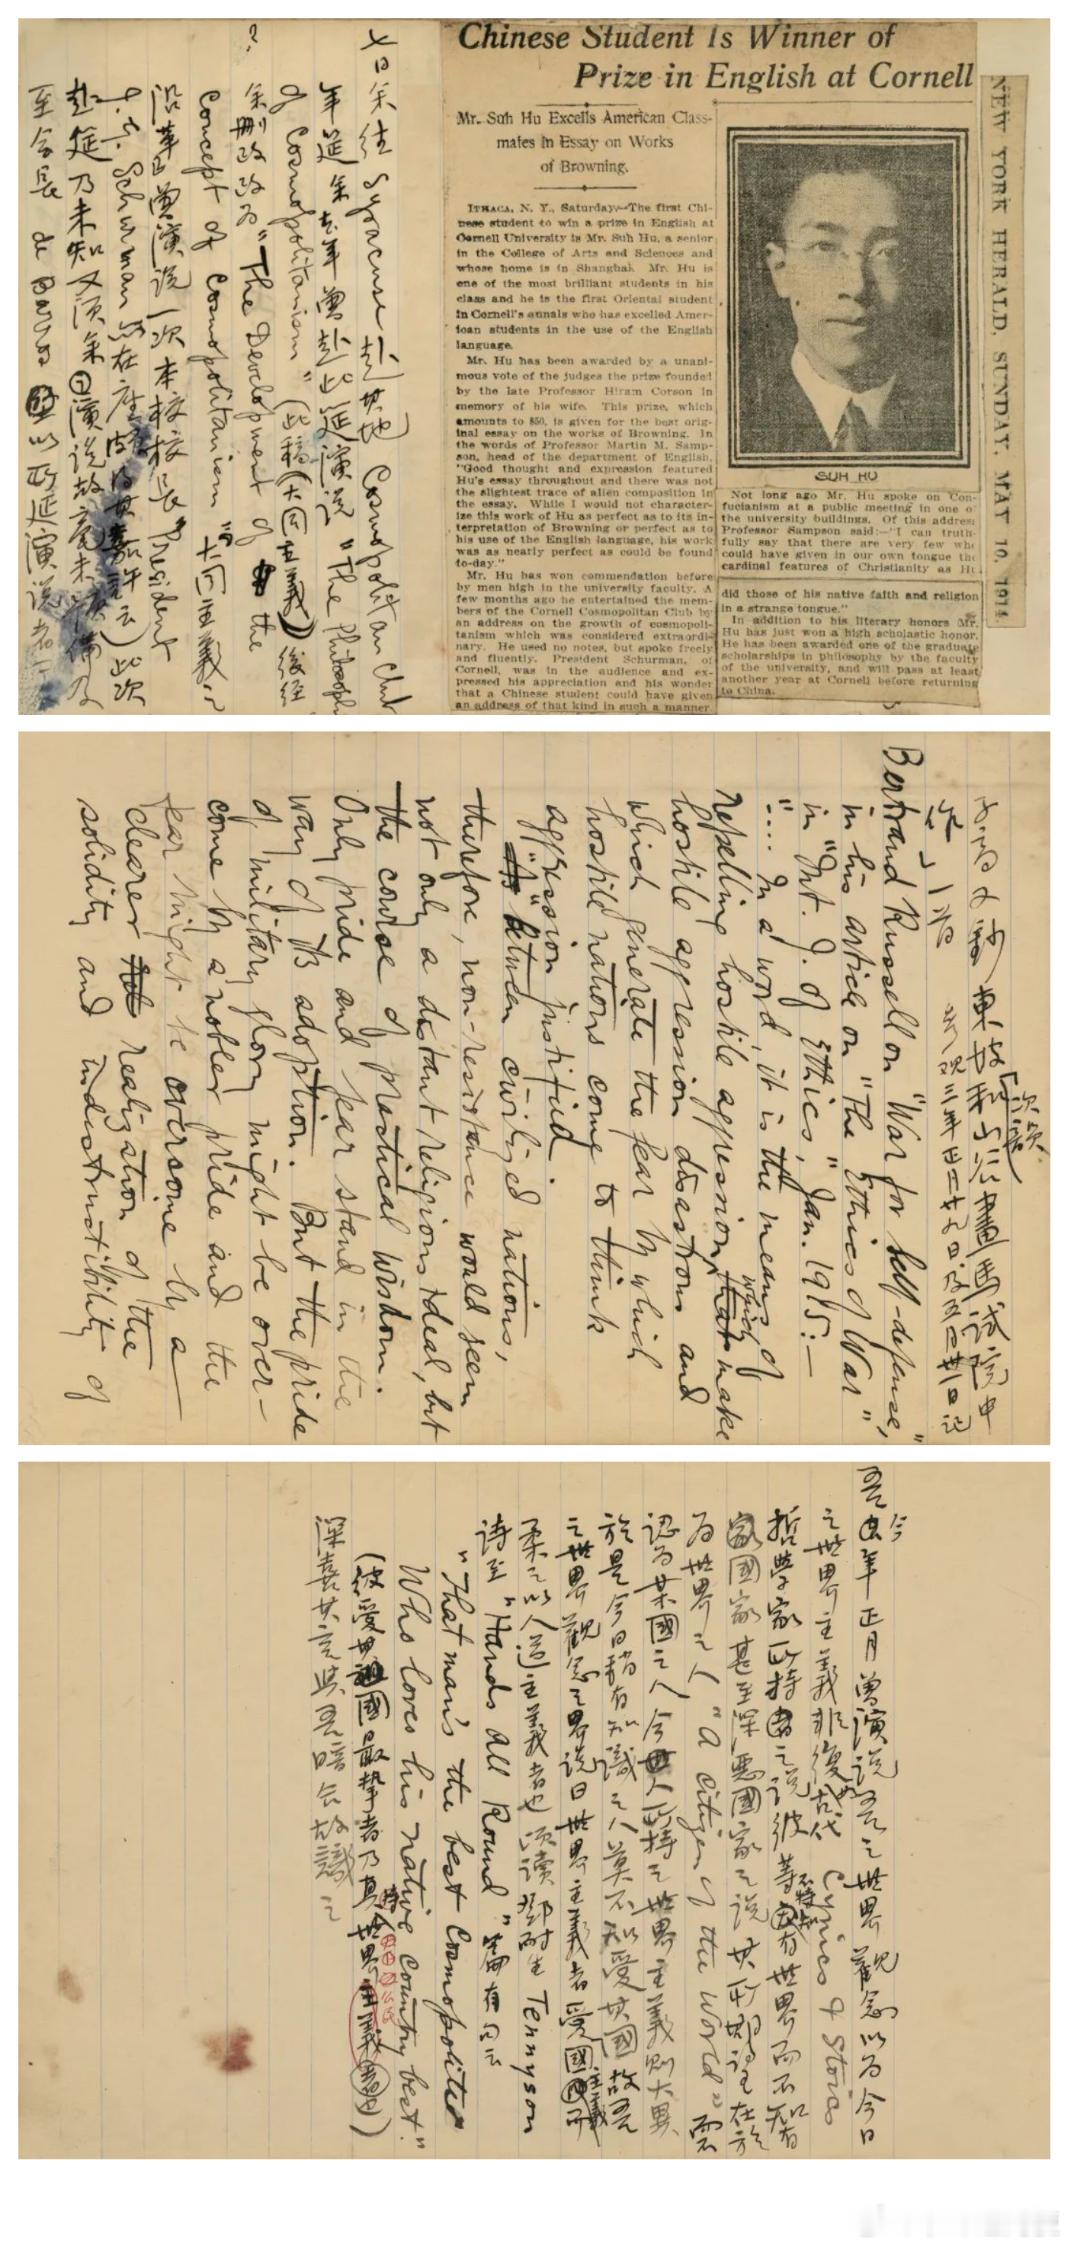 Chinese Student Is Winner of
Prize in English at Cornell
Mr. Suh Hu Excells American Class-
mates in Essay on Works
of Browning.
ITHACA, N. Y., Saturday.—The first Chi-
nese student to win a prize in English at
Cornell University is Mr. Suh Hu, a senior
in the College of Arts and Sciences and
whose home is in Shanghai. Mr. Hu is
one of the most brilliant students in his
class and he is the first Oriental student
in Cornell's annals who has excelled Amer-
ican students in the use of the English
language.
Mr. Hu has been awarded by a unani-
mous vote of the judges the prize founded
by the late Professor Hiram Corson in
memory of his wife. This prize, which
amounts to $50, is given for the best orig-
inal essay on the works of Browning. In
the words of Professor Martin M. Samp-
son, head of the department of English,
"Good thought and expression featured
Hu's essay throughout and there was not
the slightest trace of alien composition in
the essay. While I would not character-
ize this work of Hu as perfect as to its in-
terpretation of Browning or perfect as to
his use of the English language, his work
was as nearly perfect as could be found
to-day."
Mr. Hu has won commendation before
by men high in the university faculty. A
few months ago he entertained the mem-
bers of the Cornell Cosmopolitan Club by
an address on the growth of cosmopoli-
tanism which was considered extraordi-
nary. He used no notes, but spoke freely
and fluently. President Schurman, of
Cornell, was in the audience and ex-
pressed his appreciation and his wonder
that a Chinese student could have given
an address of that kind in such a manner.
SUH HU
Not long ago Mr. Hu spoke on Con-
fucianism at a public meeting in one of
the university buildings. Of this address
Professor Sampson said:—"I can truth-
fully say that there are very few who
could have given in our own tongue the
cardinal features of Christianity as Hu
did those of his native faith and religion
in a strange tongue."
In addition to his literary honors Mr.
Hu has just won a high scholastic honor.
He has been awarded one of the graduate
scholarships in philosophy by the faculty
of the university, and will pass at least
another year at Cornell before returning
to China.
NEW YORK HERALD, SUNDAY, MAY 10, 1914
七日余往 Syracuse 赴其地 Cosmopolitan Club
年筵余去年曾赴此筵演说 "The Philosophy
of Cosmopolitanism" (此稿(大同主義)後經
余刪改改为 "The Development of the
Concept of Cosmopolitanism" "大同主義"
沿革"曾演说一次本校校長 President
J. G. Schurman 亦在座 此次
赴筵乃未知又须余演说故毫未预備及
至会長
次韻
子由 東坡和 公畫馬試院中
作 一首 参观三年正月廿九日及五月廿一日记
Bertrand Russell on "War for Self-defense,"
in his article on "The Ethics of War"
in "Int. J. of Ethics," Jan. 1915:—
".... In a word, it is the means of
repelling hostile aggression which make
hostile aggression disastrous and
which generate the fear by which
hostile nations come to think
aggression justified.
"Between civilized nations,
therefore, non-resistance would seem
not only a distant religious ideal, but
the course of practical wisdom.
Only pride and fear stand in the
way of its adoption. But the pride
of military glory might be over-
come by a nobler pride and the
fear might be overcome by a
clearer realization of the
solidity and indestructibility of
吾今年正月曾演说吾之世界觀念以为今日
之世界主義非復古代 Cynics & Stoics
哲學家所持之说彼等不特知有世界而不知有
國家甚至深惡國家之说其所期望在於
为世界之人 "A citizen of the World" 而不
認为某國之人今人所持之世界主義則大異
於是今日稍有知識之人莫不知愛其國故吾
之世界觀念之界说曰世界主義者愛國主義而
柔之以人道主義者也頃讀鄧耐生 Tennyson
诗至 "Hands all Round" 篇有句云
"That man's the best Cosmopolite
Who loves his native country best."
(彼愛祖國最摯者乃真世界公民)
深喜其言與吾暗合故識之